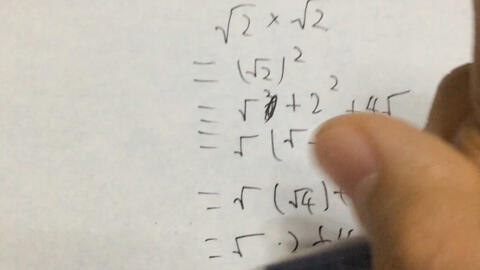 √2 × √2
= (√2)²
= √² + 2² + 4√
= √ (√
= √ (√4) +
= √